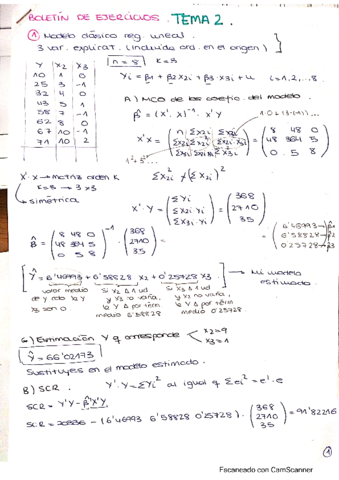 BOLETÍN DE EJERCICIOS. TEMA 2.
① Modelo clásico reg. lineal
3 var. explicat. (incluida ord. en el origen)
n = 8 k = 3
Y X2 X3
10 1 0
25 3 -1
32 4 0
43 5 1
58 7 -1
62 8 0
67 10 -1
71 10 2
Yi = β1 + β2 X2i + β3 · X3i + u i = 1, 2, .. 8.
A) MCO de los coefic. del modelo
β̂ = (X'. X)⁻¹ · X' Y
X'X = ( n Σx2i Σx3i
Σx2i Σx2i² Σx2i·x3i
Σx3i Σx3i Σx3i² ) = ( 8 48 0
48 364 5
0 5 8 )
X'·X → matriz orden K
K=3 → 3x3
→ simétrica
Σx2i² ≠ (Σx2i)²
X'·Y = ( ΣYi
Σx2i Yi
Σx3i Yi ) = ( 368
2710
35 )
β̂ = ( 8 48 0
48 364 5
0 5 8 )⁻¹ · ( 368
2710
35 ) = ( 6'46993 → β̂1
6'58828 → β̂2
0'25728 → β̂3 )
Ŷ = 6'46993 + 6'58828 X2 + 0'25728 X3 → Mi modelo estimado.
valor medio de Y cdo X2 y X3 son 0.
Si X2 Δ 1 ud y X3 no varía, la Y Δ por térm medio 6'58828
Si X3 Δ 1 ud y X2 no varía, la Y Δ por térm medio 0'25728.
Estimación Y q corresponde X2=9 X3=1
Ŷ = 66'02173
Sustituyes en el modelo estimado.
B) SCR. Y'·Y = ΣYi² al igual q Σei² = e'·e
SCR = Y'Y - β̂'X'Y
SCR = 20336 - (6'46993 6'58828 0'25728) · ( 368
2710
35 ) = 91'82216
①
Escaneado con CamScanner